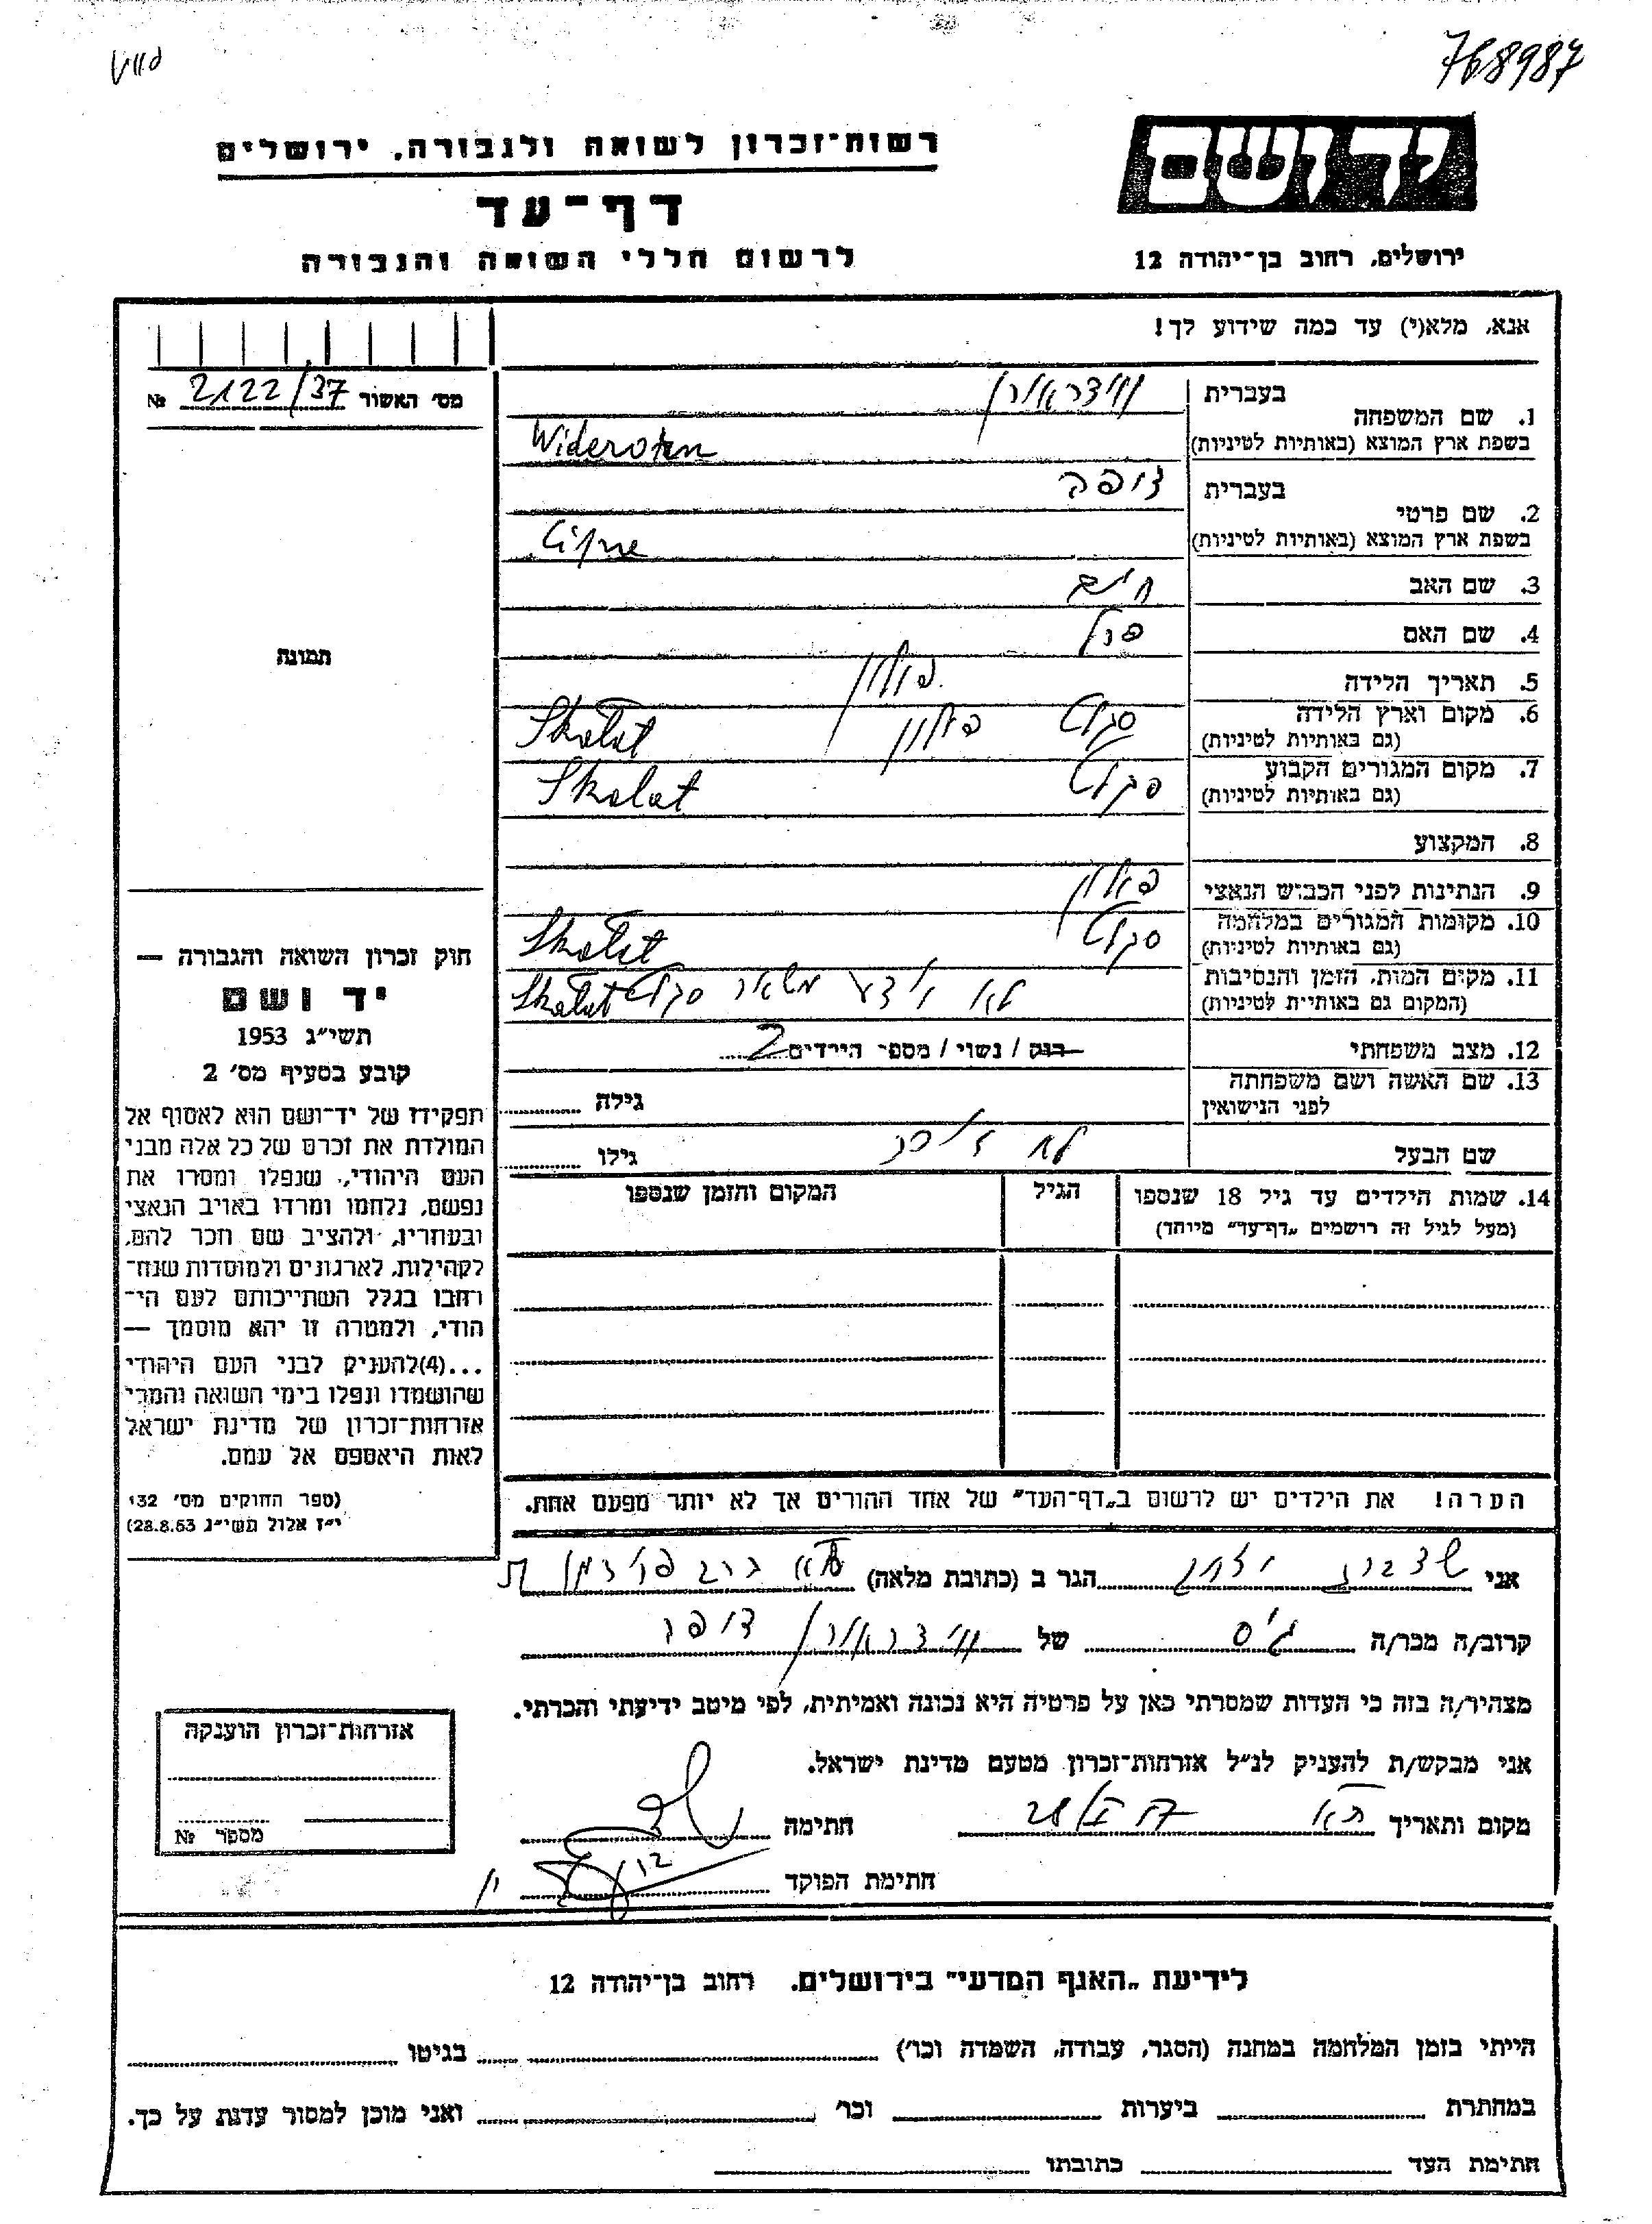 768987
רשות־זכרון לשואה ולגבורה, ירושלים
דף־עד
לרשום חללי השואה והגבורה
יד ושם
ירושלים, רחוב בן־יהודה 12
אנא, מלא(י) עד כמה שידוע לך!
מס' האשור 2122/37 №
תמונה
חוק זכרון השואה והגבורה —
יד ושם
תשי״ג 1953
קובע בסעיף מס' 2
תפקידו של יד־ושם הוא לאסוף אל
המולדת את זכרם של כל אלה מבני
העם היהודי, שנפלו ומסרו את
נפשם, נלחמו ומרדו באויב הנאצי
ובעוזריו, ולהציב שם וזכר להם,
לקהילות, לארגונים ולמוסדות שנח־
רחבו בגלל השתייכותם לעם הי־
הודי, ולמטרה זו יהא מוסמך —
...(4)להעניק לבני העם היהודי
שהושמדו ונפלו בימי השואה והמרי
אזרחות־זכרון של מדינת ישראל
לאות היאספם אל עמם.
(ספר החוקים מס' 132
י״ז אלול תשי״ג 28.8.53)
1. שם המשפחה בעברית
בשפת ארץ המוצא (באותיות לטיניות)
2. שם פרטי בעברית צופה
בשפת ארץ המוצא (באותיות לטיניות)
3. שם האב חיים
4. שם האם פרל
5. תאריך הלידה
6. מקום וארץ הלידה סקלט פולין Skalat
(גם באותיות לטיניות)
7. מקום המגורים הקבוע סקלט Skalat
(גם באותיות לטיניות)
8. המקצוע
9. הנתינות לפני הכבוש הנאצי פולין
10. מקומות המגורים במלחמה סקלט Skalat
(גם באותיות לטיניות)
11. מקום המות, הזמן והנסיבות לא ידוע סקלט Skalat
(המקום גם באותיות לטיניות)
12. מצב משפחתי רווק / נשוי / מספר הילדים 2
13. שם האשה ושם משפחתה גילה
לפני הנישואין
שם הבעל לא גילו
14. שמות הילדים עד גיל 18 שנספו הגיל המקום והזמן שנספו
(מעל לגיל זה רושמים „דף־עד״ מיוחד)
הערה! את הילדים יש לרשום ב„דף־העד״ של אחד ההורים אך לא יותר מפעם אחת.
אני הגר ב (כתובת מלאה)
קרוב/ה מכר/ה גיס של
מצהיר/ה בזה כי העדות שמסרתי כאן על פרטיה היא נכונה ואמיתית, לפי מיטב ידיעתי והכרתי.
אני מבקש/ת להעניק לנ״ל אזרחות־זכרון מטעם מדינת ישראל.
מקום ותאריך חתימה
חתימת הפוקד
אזרחות־זכרון הוענקה
מספר №
לידיעת „האגף המדעי״ בירושלים. רחוב בן־יהודה 12
הייתי בזמן המלחמה במחנה (הסגר, עבודה, השמדה וכו') בגיטו
במחתרת ביערות וכו' ואני מוכן למסור עדות על כך.
חתימת העד כתובתו